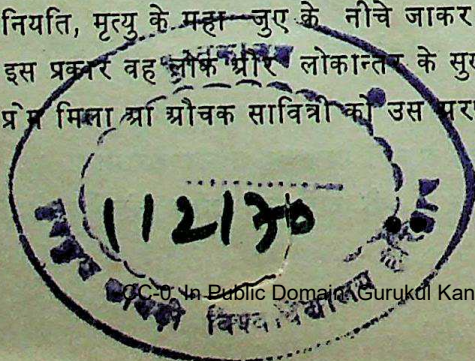 नियति, मृत्यु के महा जुए के नीचे जाकर
इस प्रकार वह लोक और लोकान्तर के सु
प्रेम मिला आ औचक सावित्री को उस
112130
CC-0. In Public Domain. Gurukul Kan